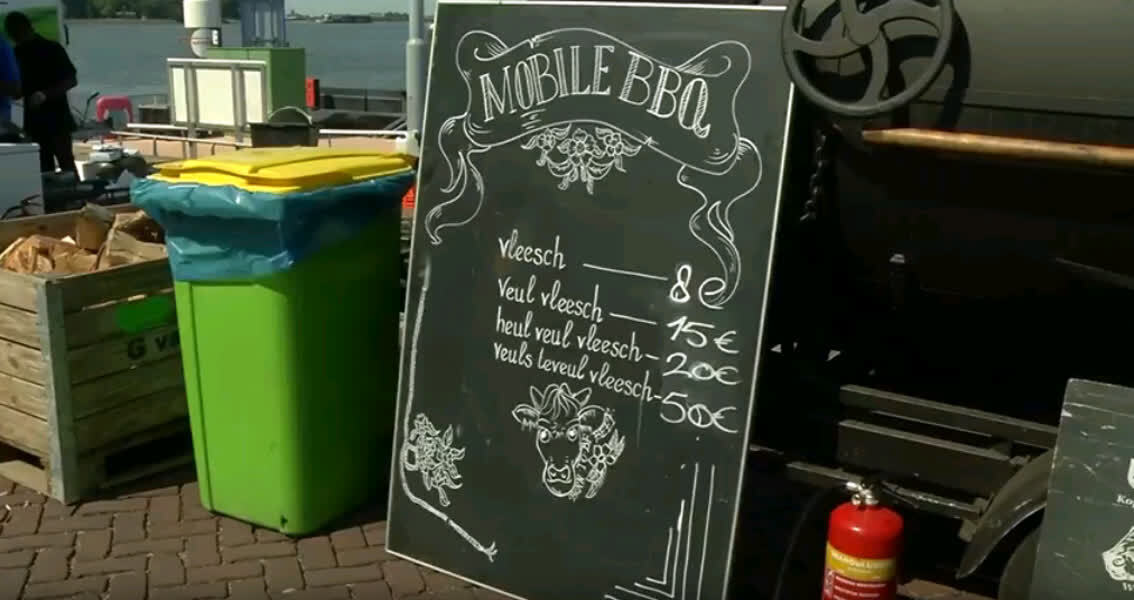 MOBILE BBQ
vleesch — 8€
veul vleesch — 15€
heul veul vleesch - 20€
veuls teveul vleesch - 50€
G